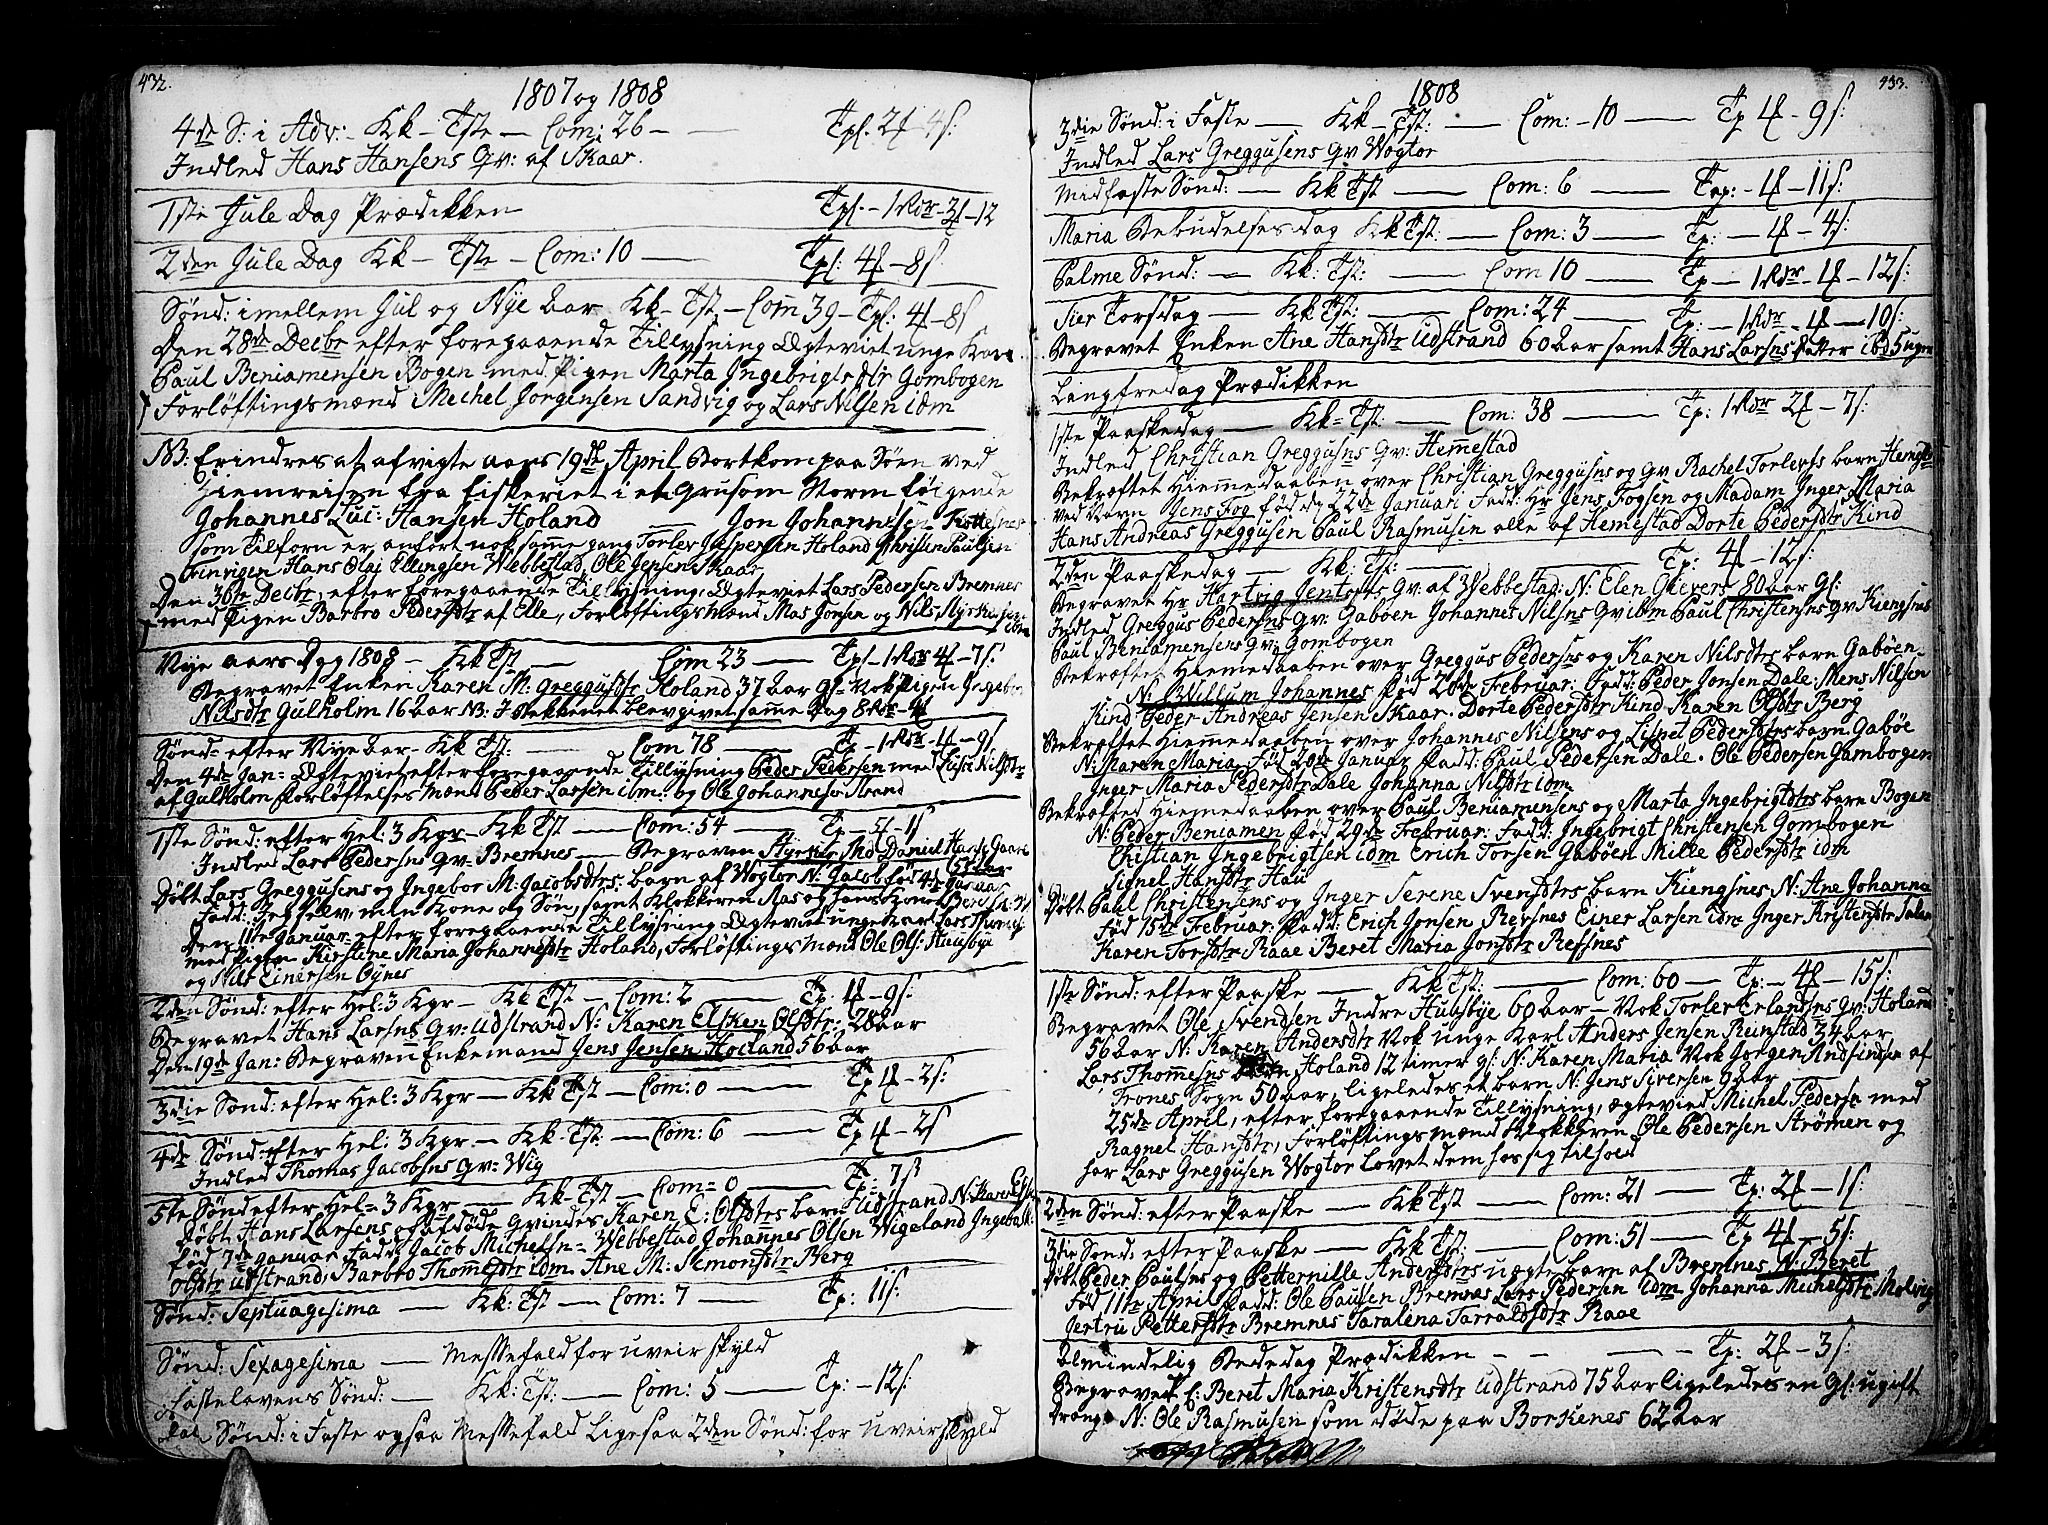 432.
1807 og 1808
4de S: i Adv: - Kk - Tste - Com: 26 - Tpl. 2 4 s:
Indled Hans Hansens Qv: af Skaar.
1ste Jule Dag Prædikken Tpl. - 1 Rdr - 3 - 12
2den Jule Dag Kk - Tste - Com: 10 Tpl: 4 - 8 s
Sønd: imellem Jul og Nye Aar Kk - Tst - Com 39 - Tpl: 4 - 8 s
Den 28de Decbr efter foregaaende Tillysning Ægteviet unge Karl
Paul Beniamensen Bogen med Pigen Marta Ingebrigts dtr Gombogen
Forløftingsmænd Mechel Jorgensen Sandvig og Lars Nilsen idm
NB: Erindres at afvigte aars 19de April Bortkom paa Søen ved
Hiemreisen fra fiskeriet i en Grusom Storm følgende
Johannes Luc: Hansen Holand - Jon Johannesen Trettesnes
som Tilforn er anført nok samme gang Torler Jespersen Holand Christen Paulsen
Finvigen Hans Olai Ellingsen Webbestad, Ole Jensen Skaar
Den 30te Decbr, efter foregaaende Tillysning: Ægteviet Lars Pedersen Bremnes
med Pigen Barbro Pedersdtr af Elle, Forløftingsmænd Mas Jonsen og Nils Hyrkusen
idm
Nye aars Dag 1808 - Kk Tst - Com 23 - Tpl - 1 Rdr 4 - 7 s:
Begravet Enken Karen M: Greggusdtr Holand 37 Aar Gl = Nok Pigen Ingebor
Nilsdtr Gulholm 16 aar NB: I Bekkenet blev givet samme Dag 8 Rdr - 4
Sønd: efter Nye Aar - Kk Tst: - Com 78 - Tp - 1 Rdr - 4 - 9 s
Den 4de Jan: Ægteviet efter foregaaende Tillysning Peder Pedersen med Lusi Nilsdtr
af Gulholm forløftelses mænd Peder Larsen idm: og Ole Johannesen Strand
1ste Sønd: efter Hel: 3 Kgr - Kk Tst - Com: 54 - Tp - 5 - 1 s
Indled Lars Pedersns Qv: Bremnes - Begraven Hyrkus, Md Daniel Hans: Gaare
65 Aar
Døbt Lars Greggusens og Ingebor M: Jacobsdtrs: barn af Wogtor N: Jacob fød 4de Januar
Fadd: Jeg selv, min Kone og Søn, samt Klokkeren Aas og hans Kone
Den 11te Januar efter foregaaende Tillysning Ægteviet unge Karl Lars Thomes:
med Pigen Kirstine Maria Johannesdtr Holand, Forløftingsmænd Ole Ols: Huusbye
og Nils Einersen Oynes
2den Sønd: efter Hel: 3 Kgr - Kk Tst - Com: 2 - Tp: 4 - 9 s:
Begravet Hans Larsns Qv: Udstrand N: Karen Elsken Olsdtr: 28 Aar
Den 19de Jan: Begraven Enkemand Jens Jensen Holland 56 aar
3die Sønd: efter Hel: 3 Kgr - Kk Tst - Com: 0 - Tp 4 - 2 s:
4de Sønd: efter Hel: 3 Kgr - Kk - Tst: - Com: 6 - Tp 4 - 2 s
Indled Thomas Jacobsns Qv: Wig
5te Sønd efter Hel: 3 Kgr - Kk - Tst - Com = 0 - Tp = 7 s
Døbt Hans Larsens og afdøde Qvindes Karen E: Olsdtrs barn Udstrand N: Karen Elsk
fød 7de Januar Fadr: Jacob Michelsn = Webbestad Johannes Olsen Wigeland Ingebor
Olsdtr Udstrand, Barbro Thomesdtr idm Ane M: Semonsdtr Berg
Sønd: Septuagesima - Kk: Tst - Com: 7 - Tp: 11 s:
Sønd: Sexagesima - Messefald for uveir skyld
Fastelavens Sønd: - Kk: Tst: - Com: 5 - Tp: - 12 s:
Sønd: i Faste ogsaa Messefald Ligesaa 2den Sønd: for uveir skyld
433.
1808
3die Sønd: i Faste - Kk - Tst: - Com: - 10 - Tp 4 - 9 s:
Indled Lars Greggusens Qv Wogtor
Midfaste Sønd: - Kk Tst - Com: 6 - Tp: - 4 - 11 s:
Maria Bebudelses dag Kk Tst: - Com: 3 - Tp: - 4 - 4 s:
Palme Sønd: - Kk: Tst: - Com 10 - Tp - 1 Rdr - 4 - 12 s:
Sier Torsdag - Kk Tst: - Com: 24 - Tp: - 1 Rdr - 4 - 10 s:
Begravet Enken Ane Hansdtr Udstrand 60 Aar samt Hans Larsns datter ibd 5 uger
Langfredag Prædikken
1ste Paaskedag - Kk = Tst: - Com: 38 - Tp: 1 Rdr 2 - 7 s:
Indled Christian Greggusns Qv: Hemestad
Bekræftet Hiemmedaaben over Christian Greggusns og Qv Rachel Torlevss barn Hemestd
ved Navn Jens Fog fød dn 22de Januari Fadd: Hr Jens Fogsen og Madam Inger Maria
Hans Andreas Greggusen Paul Rasmusen alle af Hemestad Dorte Pedersdtr Kind
2den Paaskedag - Kk: Tst: - Tp: 4 - 12 s:
Begravet Hr Hartvig Jentofts Qv: af Webbestad: N: Elen Gievers 80 Aar gl:
Indled Greggus Pedersns Qv: Gaboen Johannes Nilsns Qv idm Paul Christensns Qv Kiengsnes
Paul Beniamensens Qv: Gombogen
Bekræftet Hiemedaaben over Greggus Pedersns og Karen Nilsdtrs barn Gabøen
N: Willum Johannes fød 20de Februar: Fadd: Peder Jonsen Dale: Mens Nilsen
Kind Peder Andreas Jensen Skaar. Dorte Pedersdtr Kind Karen Olsdtr Berg
Bekræftet Hiemmedaaben over Johannes Nilsens og Lisbet Pedersdtrs barn Gabøe
N: Maren Maria, Fød 20de Januar fadd: Paul Pedersen Dale. Ole Pedersen Gambogen
Inger Maria Pedersdtr Dale Johanna Nilsdtr idm
Bekræfted Hiemedaaben over Paul Beniamensens og Marta Ingebrigtdtrs barn Bogen
N: Peder Beniamen fød 29de Februar: Fadd: Ingebrigt Christensen Gombogen
Christian Ingebrigtsen idm Erich Torsen Gabøen Mille Pedersdtr idm
Signel Hansdtr Hau
Døbt Paul Christensens og Inger Serene Svensdtrs barn Kiengsnes N: Ane Johanna
Fød 15de Februar: Fadd: Erich Jonsen Reysnes Einer Larsen idm Inger Kristensdtr
Karen Torsdtr Raae Beret Maria Jonsdtr Refsnes
1ste Sønd: efter Paaske - Kk Tst: - Com: 60 - Tp: - 4 - 15 s:
Begravet Ole Svendsen Indre Huusbye 60 Aar - Nok Torler Erlandsns Qv: Holand
56 Aar N: Karen Andersdtr Nok unge Karl Anders Jensen Reinstad 34 Aar
Lars Thomesns Holand 12 timer gl: N: Karen Maria Nok Jorgen Andsindsen af
Trones Sogn 50 aar, ligeledes et barn N: Jens Siversen 9 Aar
25de April, efter foregaaende Tillysning, ægtevied Michel Pedersn med
Ragnel Hansdtr, Forløftingsmænd Klokkeren Ole Pedersen Strømen og
har Lars Greggusen Wogtor lovet dem hos sig tilhold
2den Sønd: efter Paaske - Kk Tst - Com: 21 - Tp: 2 - 1 s:
3die Sønd: efter Paaske - Kk Tst: - Com: 51 - Tp 4 - 5 s:
Døbt Peder Paulsns og Petternille Andersdtrs uægte barn af Bremnes N: Beret
Fød 11te April fadd: Ole Paulsen Bremnes Lars Pedersen idm Johanna Michelsdtr Melvig
Jertru Pettersdtr Bremnes Taralena Tarraldsdtr Raae
Almindelig Bededag Prædikken - - - Tp: 2 - 3 s:
Begravedt E: Beret Maria Kristensdtr Udstrand 75 Aar ligeledes en gl: ugift
Dreng N: Ole Rasmusen som døde paa Borkenes 62 Aar